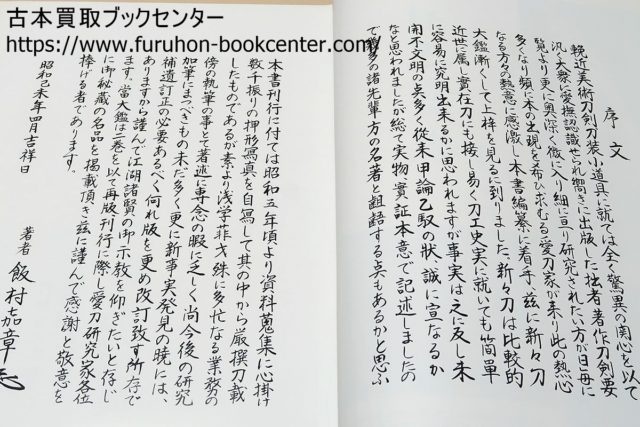 古本買取ブックセンター
https://www.furuhon-bookcenter.com/
序文
輓近美術刀剣刀装小道具に就ては全く驚異の関心を以て
汎く大衆に愛撫認識せられ嚮きに出版した拙者著作刀剣要
覧より更に奥深く微に入り細に亘り研究されたい方が日毎に
多くなり頻に本の出現を希ひ求むる愛刀家が来り此の熱心
なる方々の熱意に感激し本書編纂に着手、茲に新々刀
大鑑漸くして上梓を見るに到りました。新々刀は比較的
近世に属し実在刀にも接し易く刀工史実に就いても簡単
に容易に究明出来るかに思われますが事実は之に反し未
開不文明の点多く従来甲論乙駁の状、誠に宣なるか
なと思われましたが総て実物実証本意で記述しましたの
で幾多の諸先輩方の名著と齟齬する点もあるかと思ふ
本書刊行に付ては昭和五年頃より資料蒐集に心掛け
数千振りの押形写真を自写して其の中から厳撰刀載
したものであるが素より浅学菲才殊に多忙なる業務の
傍の執筆の事とて著述に専念の暇に乏しく尚今後の研究
加筆にまつべきもの未だ多く更に新事実発見の暁には、
補遺訂正の必要あるべく何れ版を更め改訂致す所存で
ありますから謹んで江湖諸賢の御示教を仰ぎたいと存じ
ます。当大鑑は二巻を以て再版刊行に際し愛刀研究家各位
に御秘蔵の名品を掲載頂き茲に謹んで感謝と敬意を
捧げる者であります。
昭和己未年四月吉祥日
著者 飯村嘉章